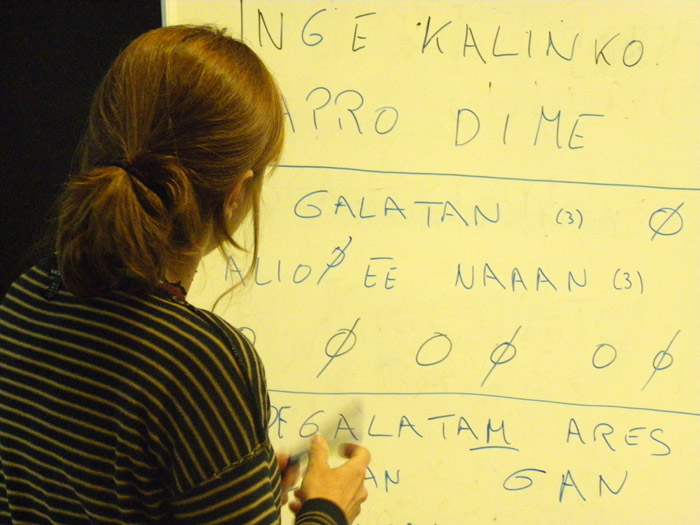 INGE KALINKO
APRO DIME
GALATAN (3) Ø
ALIOØ EE NAAAN (3)
Ø O Ø O Ø
GALATAM ARES
AN GAN